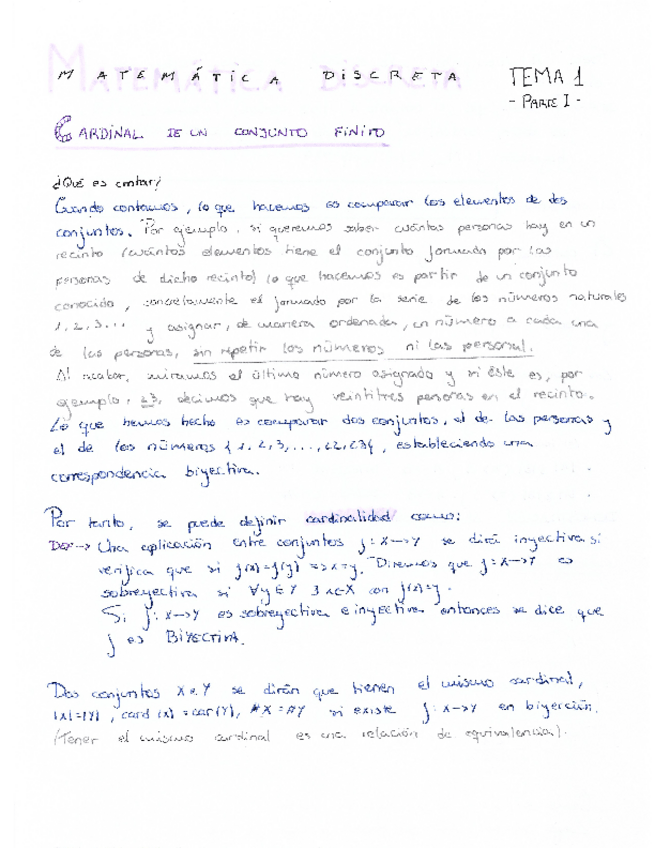 MATEMÁTICA DISCRETA
TEMA 1
- PARTE I -
CARDINAL DE UN CONJUNTO FINITO
¿Qué es contar?
Cuando contamos, lo que hacemos es comparar los elementos de dos
conjuntos. Por ejemplo, si queremos saber cuántas personas hay en un
recinto (cuántos elementos tiene el conjunto formado por las
personas de dicho recinto) lo que hacemos es partir de un conjunto
conocido, concretamente el formado por la serie de los números naturales
1, 2, 3... y asignar, de manera ordenada, un número a cada una
de las personas, sin repetir los números ni las personas.
Al acabar, miramos el último número asignado y si éste es, por
ejemplo, 23, decimos que hay veintitres personas en el recinto.
Lo que hemos hecho es comparar dos conjuntos, el de las personas y
el de los números {1, 2, 3, ..., 22, 23}, estableciendo una
correspondencia biyectiva.
Por tanto, se puede definir cardinalidad como:
DEF → Una aplicación entre conjuntos f: X → Y se dirá inyectiva si
verifica que si f(x)=f(y) => x=y. Diremos que f: X → Y es
sobreyectiva si ∀y ∈ Y ∃ x ∈ X con f(x)=y.
Si f: X → Y es sobreyectiva e inyectiva entonces se dice que
f es BIYECTIVA.
Dos conjuntos X e Y se dirán que tienen el mismo cardinal,
|X|=|Y|, card (X) = car(Y), #X = #Y si existe f: X → Y en biyección.
(Tener el mismo cardinal es una relación de equivalencia).